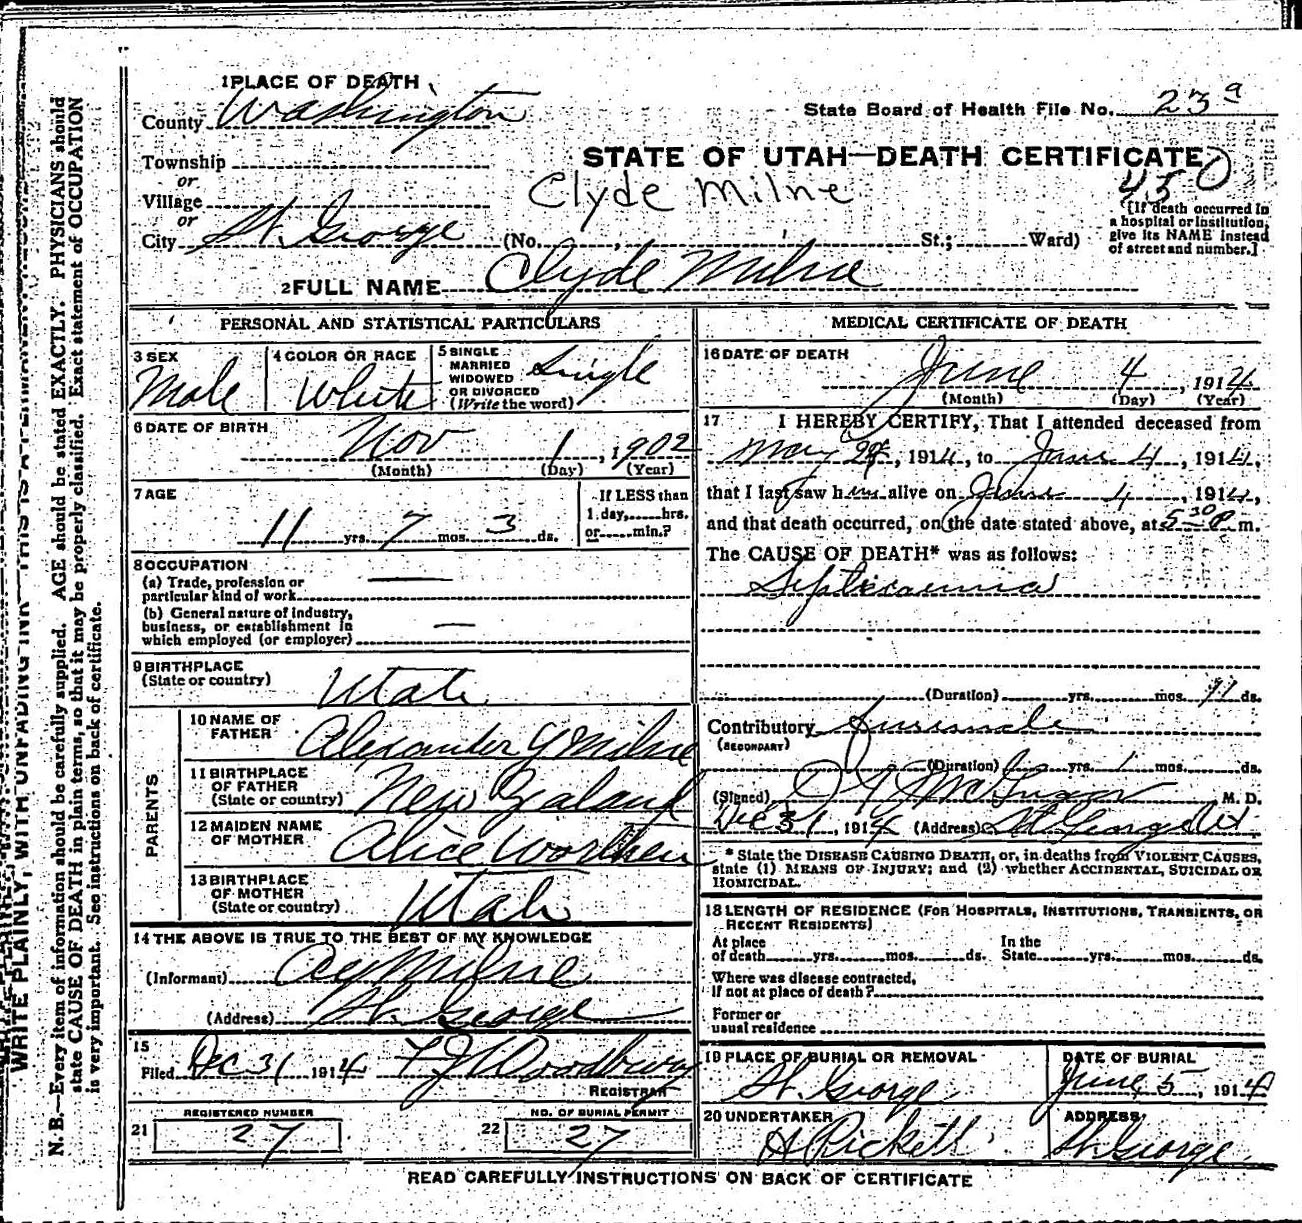 1 PLACE OF DEATH
County Washington
State Board of Health File No. 23 a
Township
or
Village
or
City St. George
STATE OF UTAH—DEATH CERTIFICATE
Clyde Milne
45
(No. , St.; Ward)
[If death occurred in
a hospital or institution,
give its NAME instead
of street and number.]
2 FULL NAME Clyde Milne
PERSONAL AND STATISTICAL PARTICULARS
3 SEX
Male
4 COLOR OR RACE
White
5 SINGLE
MARRIED
WIDOWED
OR DIVORCED
(Write the word)
Single
6 DATE OF BIRTH
Nov 1, 1902
(Month) (Day) (Year)
7 AGE
11 yrs. 7 mos. 3 ds.
If LESS than
1 day, hrs.
or min.?
8 OCCUPATION
(a) Trade, profession or
particular kind of work —
(b) General nature of industry,
business, or establishment in
which employed (or employer) —
9 BIRTHPLACE
(State or country)
Utah
PARENTS
10 NAME OF
FATHER
Alexander Y Milne
11 BIRTHPLACE
OF FATHER
(State or country)
New Zealand
12 MAIDEN NAME
OF MOTHER
Alice Worthen
13 BIRTHPLACE
OF MOTHER
(State or country)
Utah
14 THE ABOVE IS TRUE TO THE BEST OF MY KNOWLEDGE
(Informant) A Y Milne
(Address) St. George
15
Filed Dec 31 1914 F J Woodbury
REGISTRAR
REGISTERED NUMBER
21 27
NO. OF BURIAL PERMIT
22 27
MEDICAL CERTIFICATE OF DEATH
16 DATE OF DEATH
June 4, 1914
(Month) (Day) (Year)
17 I HEREBY CERTIFY, That I attended deceased from
May 1914, to June 4, 1914,
that I last saw him alive on June 4, 1914,
and that death occurred, on the date stated above, at 5 30 P m.
The CAUSE OF DEATH* was as follows:
Septicaemia
(Duration) yrs. mos. ds.
Contributory
(SECONDARY)
(Duration) yrs. 1 mos. ds.
(Signed) McGregor M. D.
Dec 31, 1914 (Address) St George Ut.
* State the DISEASE CAUSING DEATH, or, in deaths from VIOLENT CAUSES,
state (1) MEANS OF INJURY; and (2) whether ACCIDENTAL, SUICIDAL OR
HOMICIDAL.
18 LENGTH OF RESIDENCE (FOR HOSPITALS, INSTITUTIONS, TRANSIENTS, OR
RECENT RESIDENTS)
At place
of death yrs. mos. ds.
In the
State yrs. mos. ds.
Where was disease contracted,
if not at place of death?
Former or
usual residence
19 PLACE OF BURIAL OR REMOVAL
St. George
DATE OF BURIAL
June 5, 1914
20 UNDERTAKER
A Pickett
ADDRESS
St. George
READ CAREFULLY INSTRUCTIONS ON BACK OF CERTIFICATE
WRITE PLAINLY, WITH UNFADING INK—THIS IS A PERMANENT RECORD
N. B.—Every item of information should be carefully supplied. AGE should be stated EXACTLY. PHYSICIANS should
state CAUSE OF DEATH in plain terms, so that it may be properly classified. Exact statement of OCCUPATION
is very important. See instructions on back of certificate.